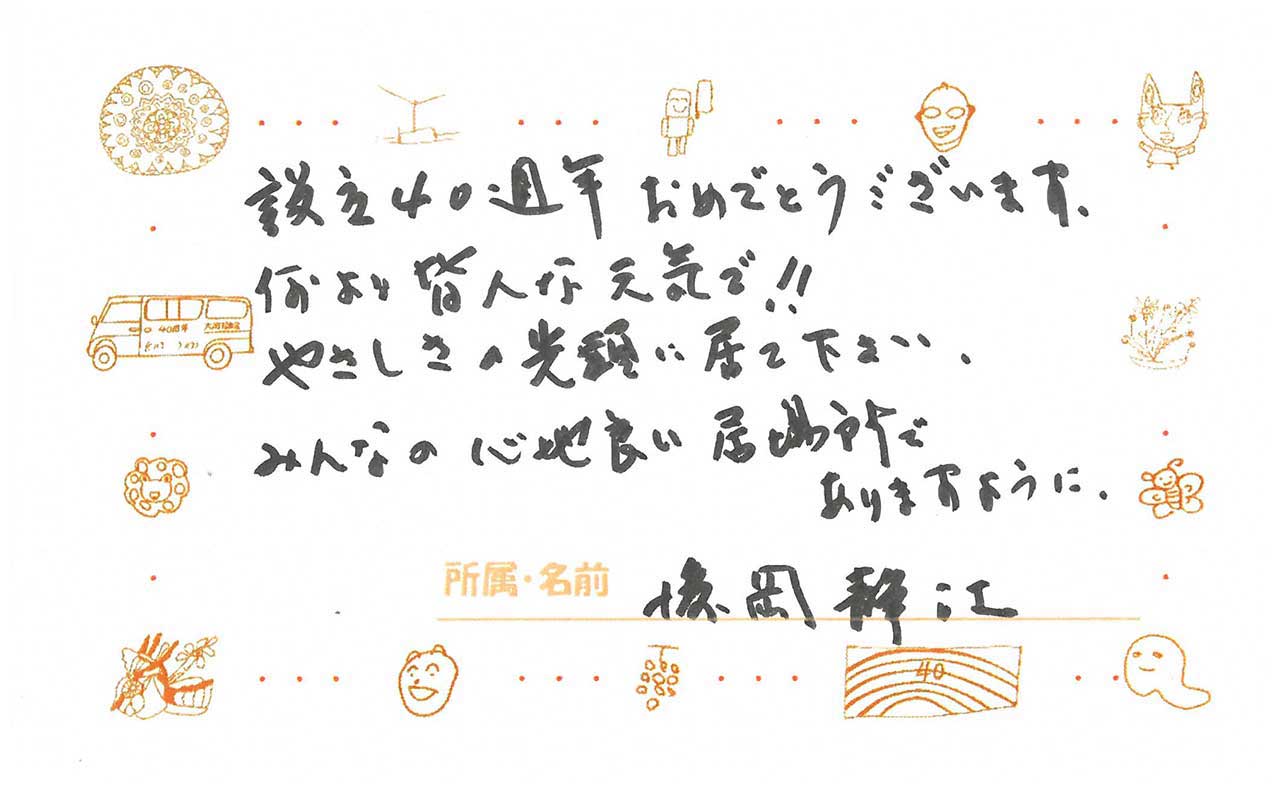 設立40週年 おめでとうございます、
何より皆んな元気で!!
やさしさの先頭に居て下さい。
みんなの心地良い居場所で
ありますように。
所属・名前 岡 静江
40周年
40